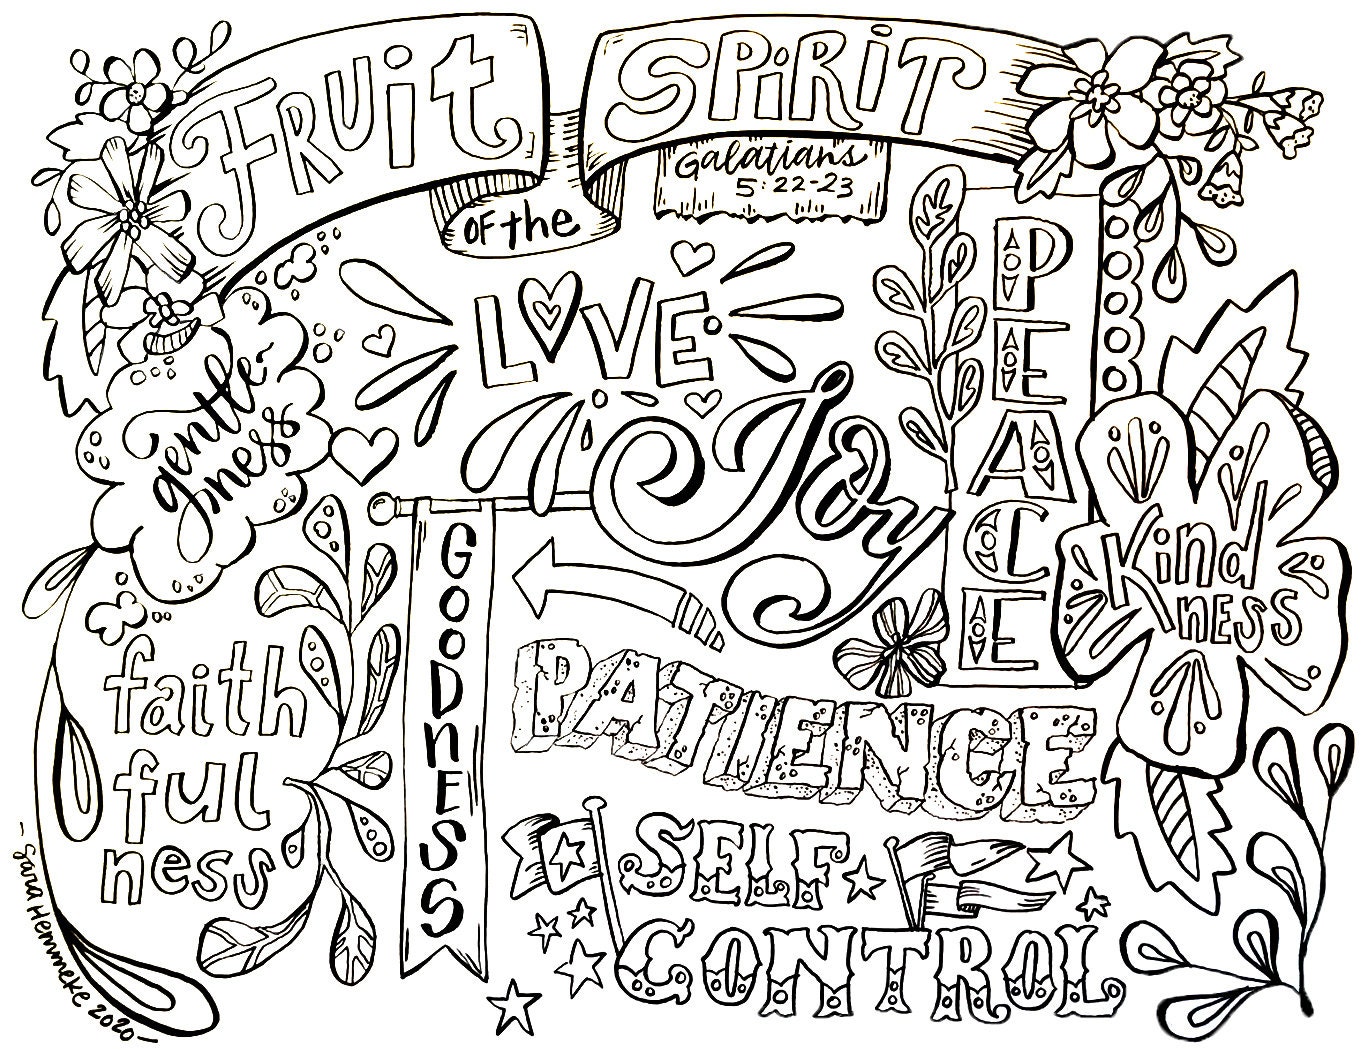 Fruit
of the
Spirit
Galatians
5:22-23
Love
Joy
PEACE
gentle-
ness
Kind
ness
faith
ful
ness
GOODNESS
PATIENCE
SELF
CONTROL
-Sara Hemmeke 2020-